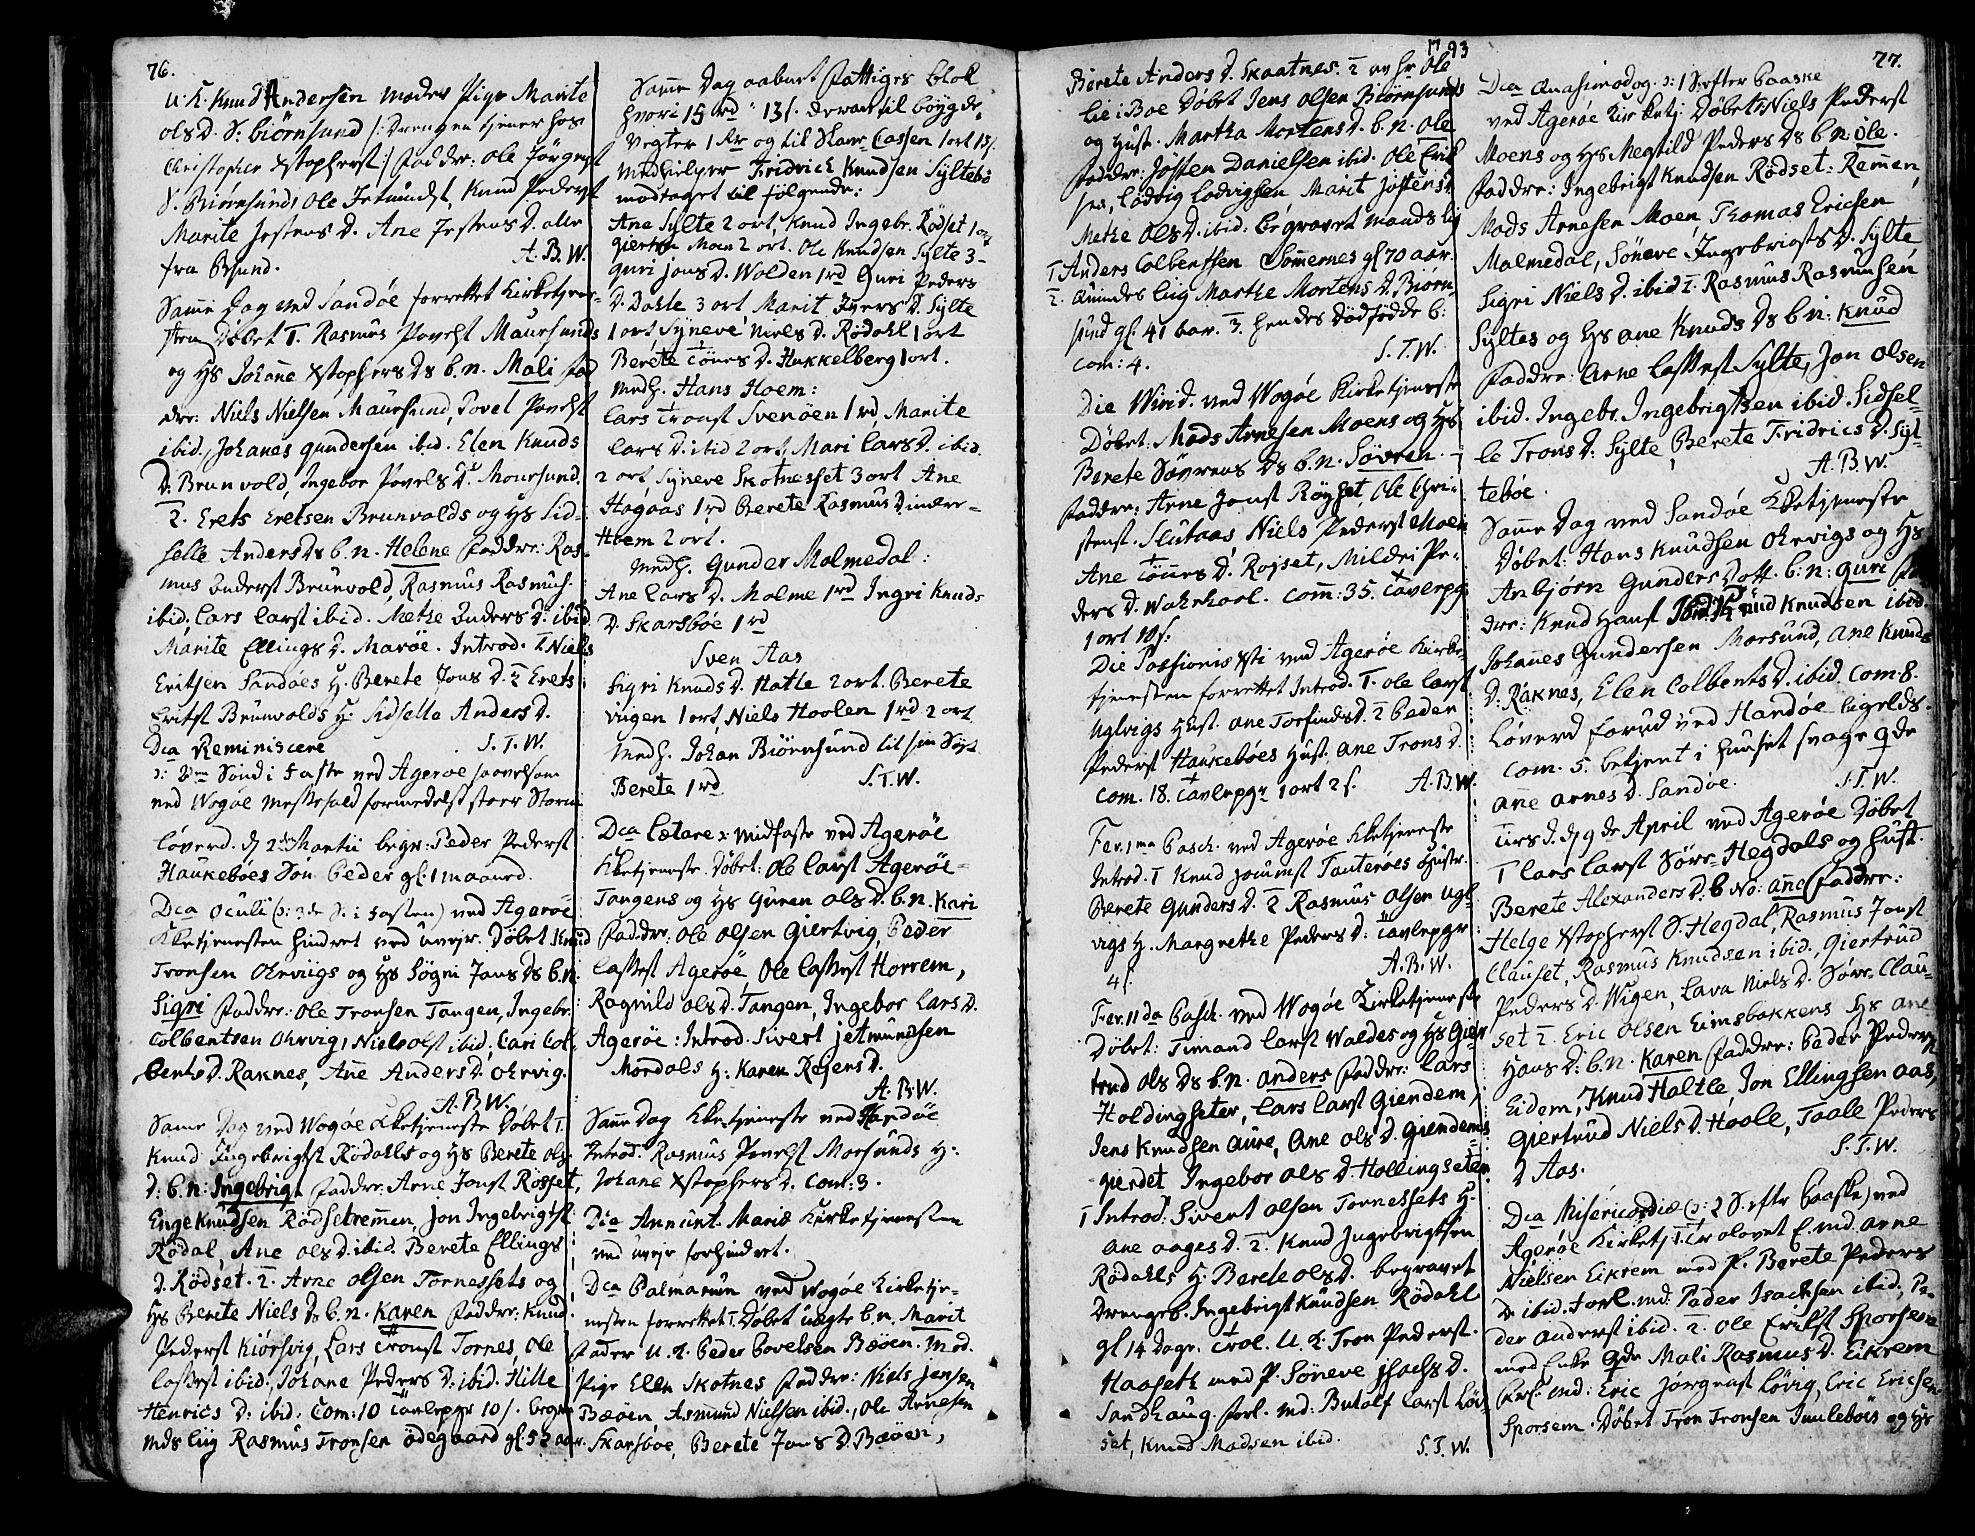 76.
U: K: Knud Andersen moder Pige Marite
Ols D. S: Biörnsund /: Drengen tjener hos
Christopher Xstophersl :/ Faddre: Ole Jörgensl
S. Biörnsund, Ole Jetmundsl, Knud Pedersl
Marite Jostens D. Ane Jostens D. alle
fra Bsund. A.B.W.
Samme Dag ved Sandöe forrettet Kirketjene-
sten Döbet 1. Rasmus Povelsl Maursunds
og Hs Johanne Xstophers Ds b.n. Mali Fad
dre: Niels Nielsen Maursund, Povel Povelsl
ibid. Johanes Gundersen ibid. Elen Knuds
D. Brunvold, Ingebor Povels D. Moursund.
2. Erets Eretsen Brunvolds og Hs Sid-
selle Anders Ds b.n. Helene Faddre: Ras-
mus Andersl Brunvold, Rasmus Rasmusl
ibid, Lars Larsl ibid. Methe Anders D. ibid
Marite Ellings D. Maröe. Introd. 1 Niels
Eritsen Sandöes H. Berete Jons D. 2 Erets
Eritsl Brunvolds H: Sidselle Anders D.
Dca Reminiscere S.T.W.
ɔ: 2den Sönd i Faste ved Ageröe saavelsom
ved Wogöe Messefald formedelst stoer Storm
Löverd. d 2den Martii begr: Peder Pedersl
Haukeböes Sön Peder gl: 1 maaned.
Dca Oculi (ɔ: 3de S: i Fasten) ved Ageröe
Kketjenesten hindret ved uvejr. Döbet Knud
Tronsen Ohrviigs og Hs Sögni Jons Ds b.n.
Sigri Faddre: Ole Tronsen Tangen, Ingebr.
Colbentsen Ohrvig, Niels Olsl ibid, Cari Col-
bents D. Raknes, Ane Anders D. Ohrvig.
A.B.W.
Same Dag ved Wogöe Kketjeneste Döbet 1.
Knud Ingebrigtsl Rödahls og Hs Berete Ols
D: b.n: Ingebrigt Faddre: Arne Jonsl Rösset,
Enge Knudsen Rödsetremmen, Jon Ingebrigtsl
Rödal, Ane Ols D. ibid. Berete Ellings
D. Rödset. 2. Arne Olsen Tornessets og
Hs Berete Niels Ds b.n. Karen Faddre: Knud
Pedersl Kiörsvig, Lars Tronsl Tornes, Ole
Lassesl ibid, Johane Peders D. ibid. Hille
Henrics D: ibid. Com: 10 Tavlepgr 10 ſ. begra
mds Liig Rasmus Tronsen Ödegaard gl. 53 aar.
Samme Dag aabnet Fattiges Blok
hvori 15 rd 13 ſ. deraf til böygde-
Vegter 1 Rd og til Skarr Cassen 1 ort 13 ſ.
Medhielper Fridrich Knudsen Sylteböe
modtaget til fölgende:
Ane Sylte 2 ort, Knud Ingebr. Rödset 1 ort
Giertru Moen 2 ort. Ole Knudsen Sylte 3-
Guri Jons D. Wolden 1 rd Guri Peders
D. Dahle 3 ort, Marit Ivers D. Sylte
1 ort, Syneve Niels D. Rödahl 1 ort
Berete Tönes D. Hukkelberg 1 ort.
Medh. Hans Hoem:
Lars Tronsl Svenöen 1 rd, Marite
Lars D. ibid 2 ort, Mari Lars D. ibid.
2 ort, Syneve Skotnesset 3 ort Ane
Hagaas 1 rd Berete Rasmus D. indre-
Hoem 2 ort.
Medh. Gunder Malmedal:
Ane Lars D. Malme 1 rd Ingri Knuds
D. Skarsböe 1 rd
Sven Aas
Sigri Knuds D. Hatle 2 ort. Berete
Viigen 1 ort, Niels Hoolen 1 rd 2 ort
Medh. Johan Biörnsund til sin Söst
Berete 1 rd S.T.W.
Dca Lætare ɔ: Midfaste ved Ageröe
Kketjeneste. Döbet: Ole Larsl Ageröe-
Tangens og Hs Guren Ols D. b.n. Kari
Faddre: Ole Olsen Giertvig, Peder
Lassesl Ageröe, Ole Lassesl Horrem,
Ragnild Ols D. Tangen, Ingebor Lars D.
Ageröe: Introd. Sivert Jetmundsen
Mordals H: Karen Rejers D.
A.B.W.
Samme Dag Kketjeneste ved Sandöe
Introd. Rasmus Povelsl Morsunds H:
Johane Xstophers D. Com: 3.
Die Annunt. Mariæ Kirketjenesten
ved uvejr forhindret.
Dca Palmarum ved Wogöe Kirketje-
nesten forrettet 1. Döbet uægte b.n. Marit
Fader U.K. Peder Povelsen Bæöen. Mod.
Pige Ellen Skotnes Faddre: Niels Jensen
Bæöen Asmund Nielsen ibid., Ole Arnesen
Skarsböe, Berete Jons D. Bæöen,
1793
Berete Anders D. Skaatnes. 2 Ole
lie i Boe Döbet Jens Olsen Biörnsunds
og Hust. Martha Mortens D. b.n. Ole
Faddre: Josten Danielsen ibid. Ole Erik
sen, Ladvig Ladvigsen Marit Jostens D.
Methe Ols D. ibid. begravet Mands lig
1 Anders Colbentsen Sömernes gl 70 aar.
2. Quindes Liig Marthe Mortens D. Biörn-
sund gl. 41 aar. 3. hendes dödfödde b:
Com: 4. S.T.W.
Die Virid. ved Wogöe Kirketjeneste
Döbet: Mads Arnesen Moens og Hs
Berete Sövrens Ds b.n. Sövren.
Faddre: Arne Jonsl Röyset, Ole Chri-
stensl. Slutaas Niels Pedersl Moen
Ane Tönnes D. Rojset, Mildri Pe-
ders D. Wahrhool. Com: 35. Tavlepg
1 ort 10 ſ.
Die Passionis Xsti ved Ageröe Kirke-
tjenesten forrettet Introd. 1. Ole Larsl
Uglvigs Hust. Ane Torfinds D. 2 Peder
Pedersl Haukeböes Hust. Ane Trons D.
Com. 18. Tavlepgr 1 ort 2 ſ. A.B.W.
Fer. 1ma Pasch. ved Ageröe Kketjeneste
Introd. 1 Knud Tauteröes Hustr.
Berete Gunders D. 2 Rasmus Olsen Ugl-
vigs H. Margrethe Peders D: Tavlepgr
4 ſ. A.B.W.
Fer. 11da Pasch. ved Wogöe Kirketjeneste
Döbet: Timand Larsl Waldes og Hs Gier
trud Ols Ds b.n. Anders Faddre: Lars
Holdingseter, Lars Larsl Giendem,
Jens Knudsen Aure, Ane Ols D. Giendems
Gierdet Ingebor Ols D. Hollingseter
1 Introd. Sivert Olsen Tornessets H.
Ane Aages D. 2. Knud Ingebrigtsen
Rödahls H. Berete Ols D. begravet
Drenge b. Ingebrigt Knudsen Rödahl
gl 14 Dage. Trol. U.K. Tron Pedersl.
Haaseth med P. Söneve Isachs D.
Sandhaug. Forl. md: Butolf Larsl Löv
set, Knud Madsen ibid. S.T.W.
77.
Dca Quasimodog: ɔ: 1 S. efter Paaske
ved Ageröe Kirketj: Döbet 1 Niels Pedersl
Moens og Hs Megtild Peders Ds b.n: Ole.
Faddre: Ingebrigt Knudsen Rödset-Remen,
Mads Arnesen Moen, Thomas Ericsen
Malmedal, Söneve Ingebrigts D. Sylte
Sigri Niels D. ibid 2. Rasmus Rasmusen
Syltes og Hs Ane Knuds Ds b.n: Knud
Faddre: Arne Lassesl Sylte, Jon Olsen
ibid. Ingebr. Ingebrigtsen ibid. Sidsel-
le Trons D. Sylte, Berete Fridrics D. Syl-
teböe. A.B.W.
Samme Dag ved Sandöe Kketjeneste
Döbet: Hans Knudsen Ohrvigs og Hs
Anbjörn Gunders Dott. b.n: Guri Fad
dre: Knud Hansl Knud Knudsen ibid.
Johannes Gundersen Morsund, Ane Knuds
D. Raknes, Elen Colbents D. ibid. Com. 8.
Löverd. forud ved Handöe ligelds.
Com. 5. betjent i Huuset svage qde
Ane Arnes D. Sandöe. S.T.W.
Tirsd. d 9de April ved Ageröe Döbet
1 Lars Larsl Sörr-Hegdals og Hust.
Berete Alexanders D. b No: Ane Faddre:
Helge Xstophersl S. Hegdal, Rasmus Jonsl
Clauset, Rasmus Knudsen ibid., Giertrud
Peders D. Wigen, Lava Niels D. Sörr-Clau-
set 2. Eric Olsen Eimsbakkens Hs Ane
Hans D: b.n. Karen Faddre: Peder Peders
Eidem, Knud Haltle, Jon Ellingsen Aas,
Giertrud Niels D. Hoole, Taale Peders
D Aas. S.T.W.
Dca Misericordiæ (ɔ: 2 S. eftr Paaske) ved
Ageröe Kirketj 1. Trolovet E. md. Arne
Nielsen Eikrem med P. Berete Peders
D. ibid. Forl. md. Peder Isachsen ibid, Pe-
der Andersl ibid. 2. Ole Eriksl Sporsem
med Enke Qde Mali Rasmus D. Eikrem
Forl: md: Eric Jörgensl Lövig, Eric Ericsen
Sporsem. Döbet Tron Tronsen Juuleböes og Hs